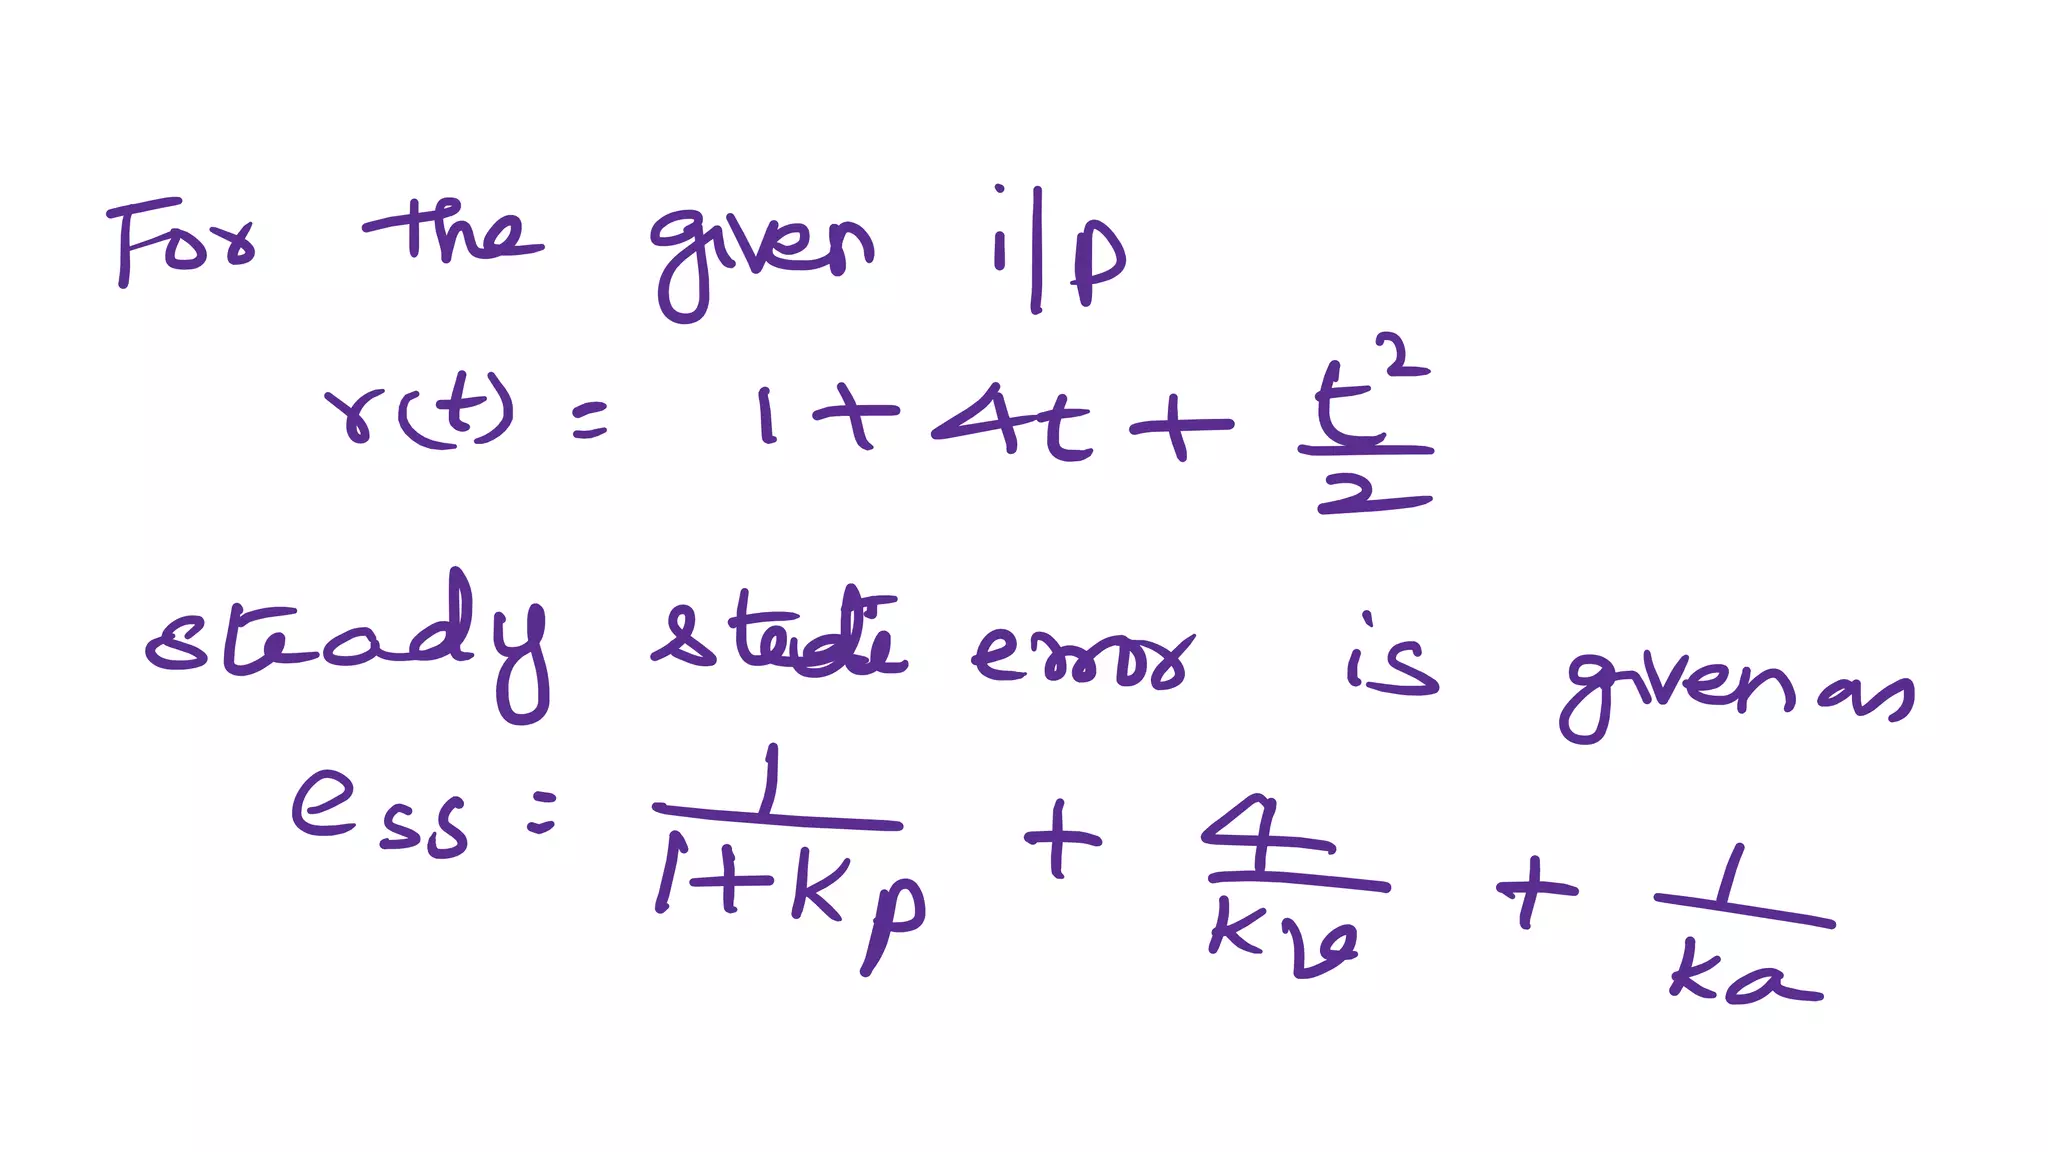 For the given i/p
r(t) = 1 + 4t + t²/2
steady state error is given as
ess = 1/(1+Kp) + 4/Kv + 1/Ka